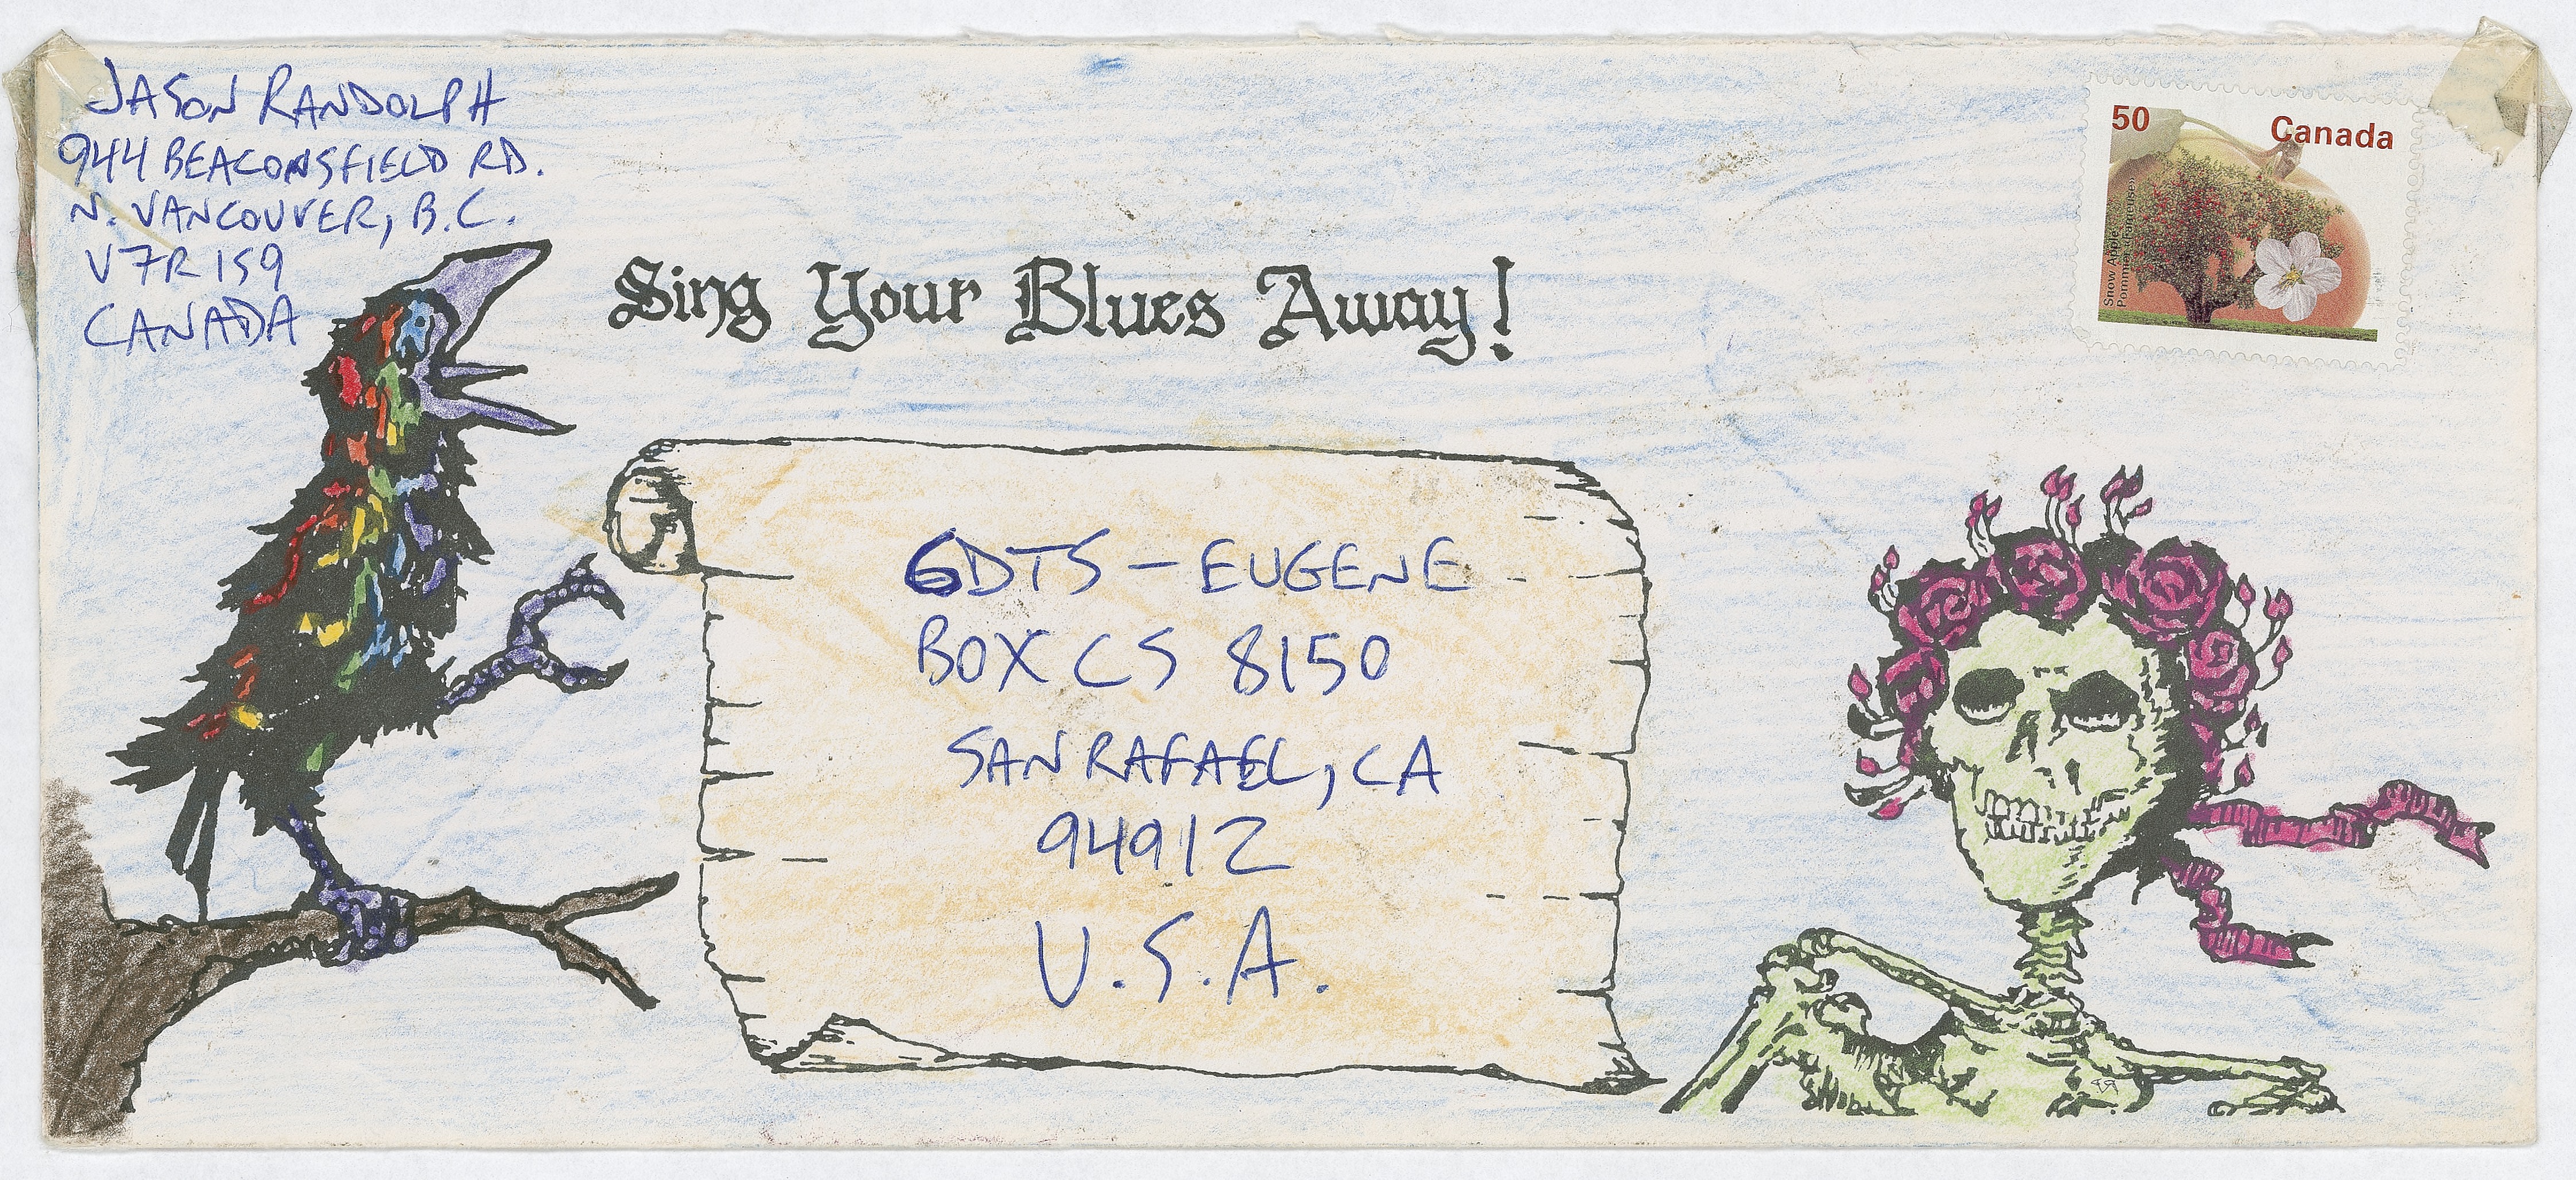 JASON RANDOLPH
944 BEACONSFIELD RD.
N. VANCOUVER, B.C.
V7R 1S9
CANADA
50
Canada
Snow Apple
Pommier «Fameuse»
Sing Your Blues Away!
GDTS - EUGENE
BOX CS 8150
SAN RAFAEL, CA
94912
U.S.A.